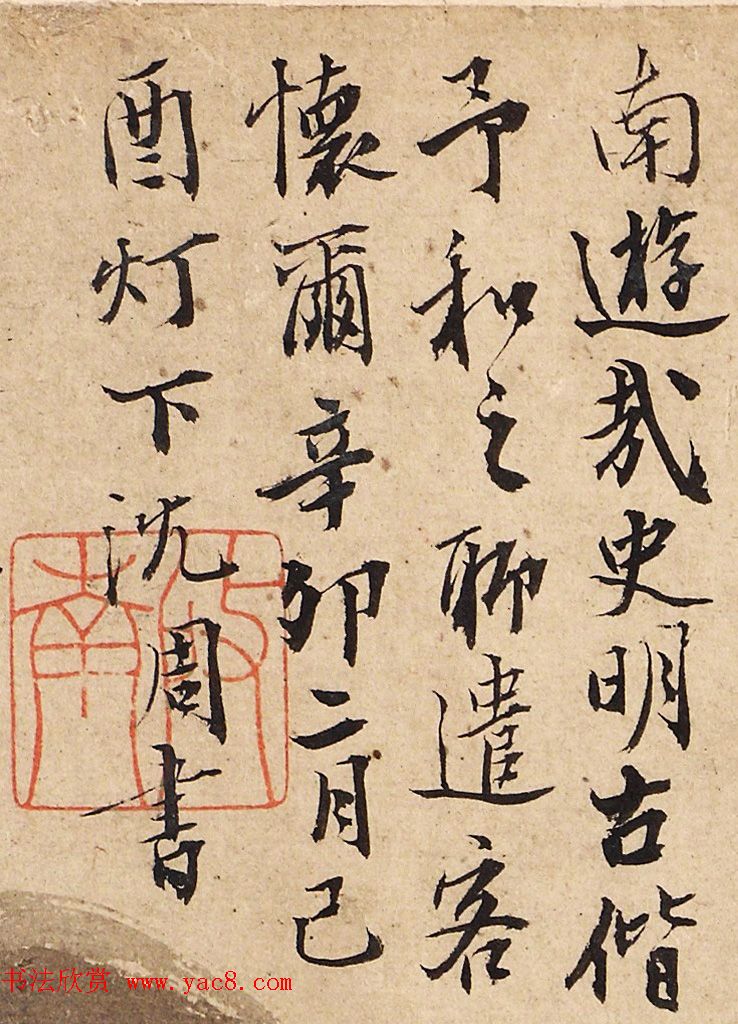 南遊哉史明古偕
予和之聊遣客
懷爾辛卯二月己
酉灯下沈周書
啟南
书法欣赏 www.yac8.com